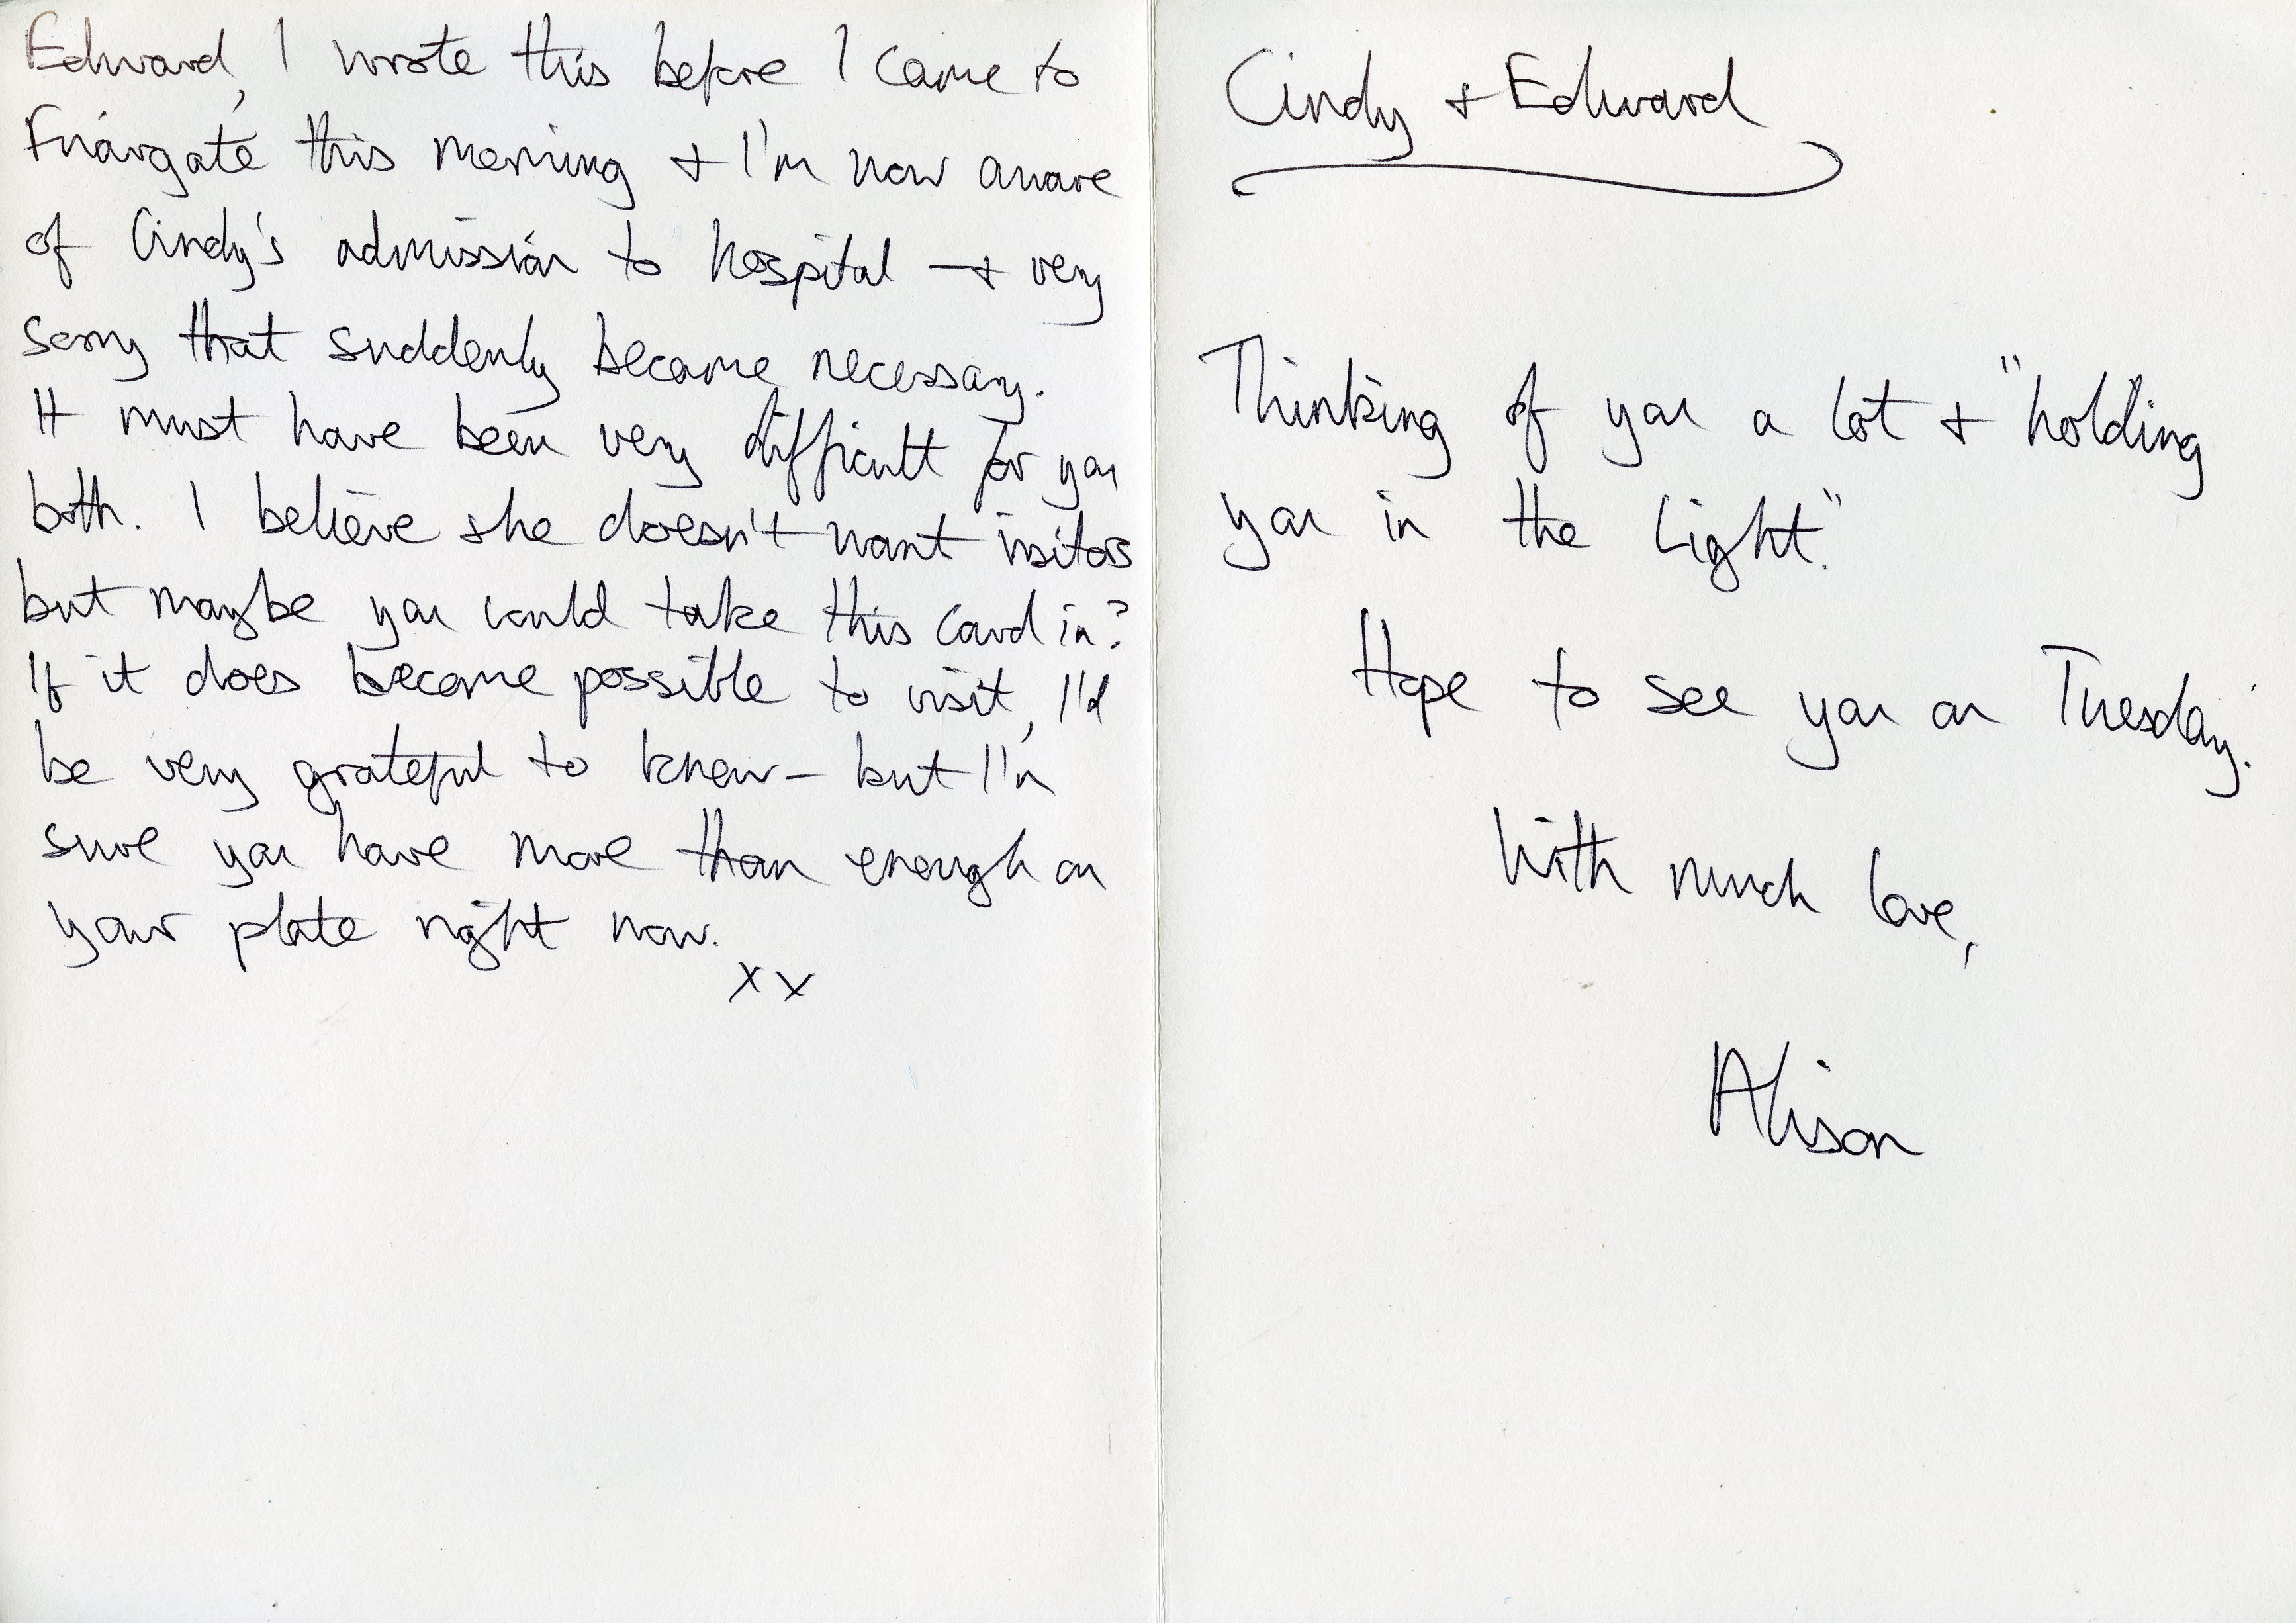 Edward, I wrote this before I came to
Friargate this morning + I'm now aware
of Cindy's admission to hospital – + very
sorry that suddenly became necessary.
It must have been very difficult for you
both. I believe she doesn't want visitors
but maybe you could take this card in?
If it does become possible to visit, I'd
be very grateful to know – but I'm
sure you have more than enough on
your plate right now.
xx
Cindy + Edward
Thinking of you a lot + "holding
you in the Light."
Hope to see you on Tuesday.
With much love,
Alison